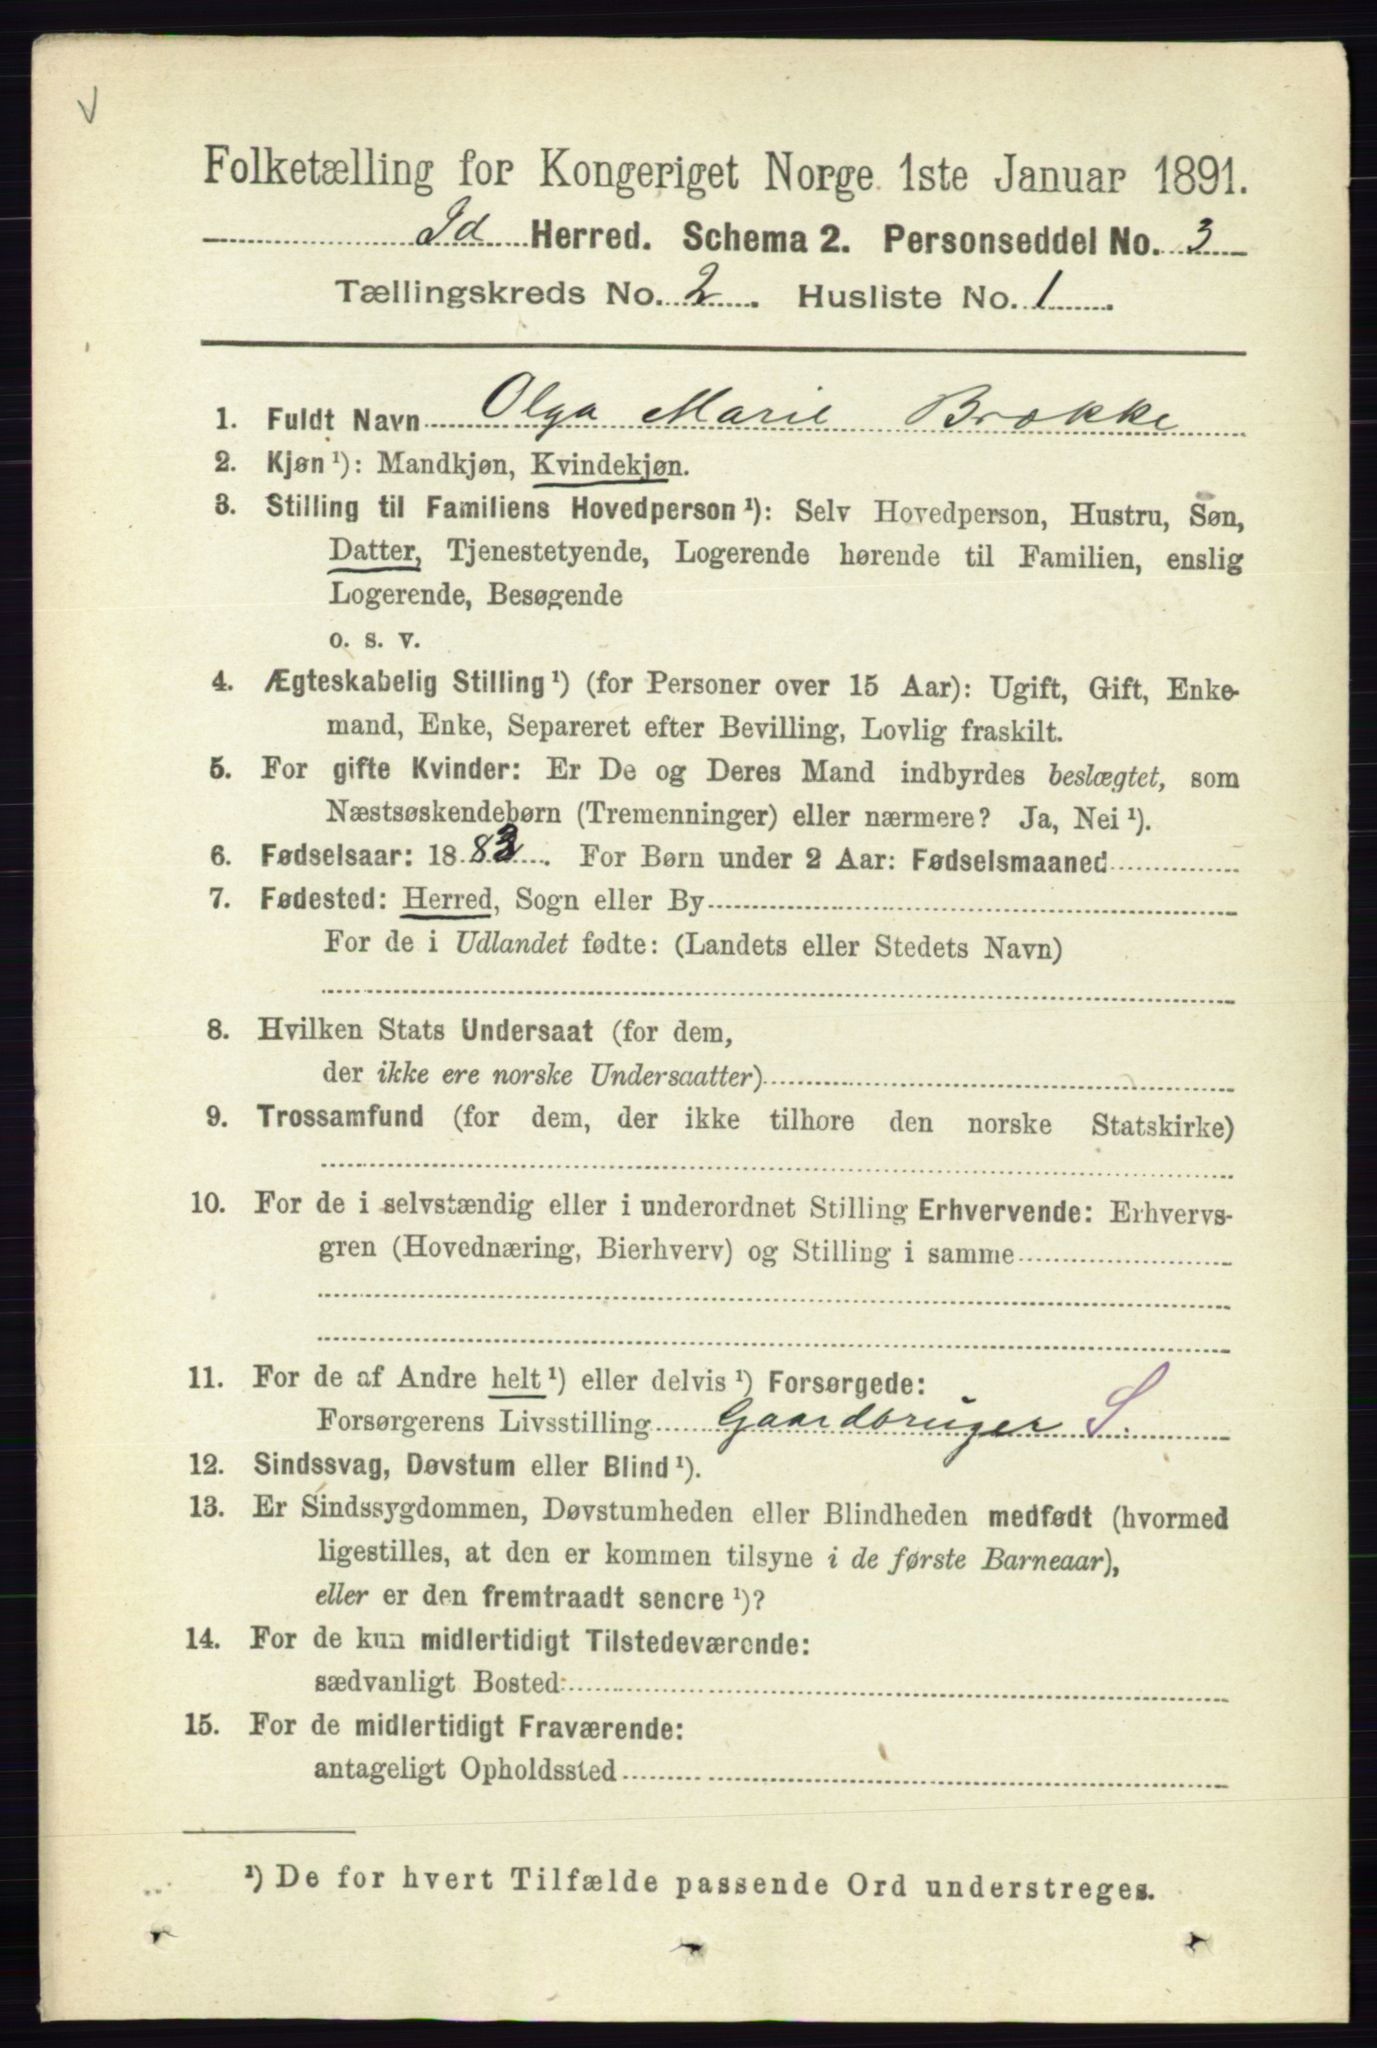 V
Folketælling for Kongeriget Norge 1ste Januar 1891.
Id Herred. Schema 2. Personseddel No. 3
Tællingskreds No. 2. Husliste No. 1.
1. Fuldt Navn Olga Marie Brokke
2. Kjøn ¹): Mandkjøn, Kvindekjøn.
3. Stilling til Familiens Hovedperson ¹): Selv Hovedperson, Hustru, Søn,
Datter, Tjenestetyende, Logerende hørende til Familien, enslig
Logerende, Besøgende
o. s. v.
4. Ægteskabelig Stilling ¹) (for Personer over 15 Aar): Ugift, Gift, Enke-
mand, Enke, Separeret efter Bevilling, Lovlig fraskilt.
5. For gifte Kvinder: Er De og Deres Mand indbyrdes beslægtet, som
Næstsøskendebørn (Tremenninger) eller nærmere? Ja, Nei ¹).
6. Fødselsaar: 1883. For Børn under 2 Aar: Fødselsmaaned
7. Fødested: Herred, Sogn eller By
For de i Udlandet fødte: (Landets eller Stedets Navn)
8. Hvilken Stats Undersaat (for dem,
der ikke ere norske Undersaatter)
9. Trossamfund (for dem, der ikke tilhore den norske Statskirke)
10. For de i selvstændig eller i underordnet Stilling Erhvervende: Erhvervs-
gren (Hovednæring, Bierhverv) og Stilling i samme
11. For de af Andre helt ¹) eller delvis ¹) Forsørgede:
Forsørgerens Livsstilling Gaardbruger S.
12. Sindssvag, Døvstum eller Blind ¹).
13. Er Sindssygdommen, Døvstumheden eller Blindheden medfødt (hvormed
ligestilles, at den er kommen tilsyne i de første Barneaar),
eller er den fremtraadt senere ¹)?
14. For de kun midlertidigt Tilstedeværende:
sædvanligt Bosted
15. For de midlertidigt Fraværende:
antageligt Opholdssted
¹) De for hvert Tilfælde passende Ord understreges.